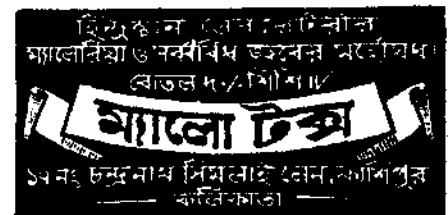 হিন্দুস্থান রেমেডিজের
ম্যালেরিয়া ও সর্ব্ববিধ জ্বরের মহৌষধ
বোতল ১৲ শিশি
ম্যালো টক্স
১৭ নং চন্দ্রনাথ সিমলাই লেন, কাশিপুর
কলিকাতা